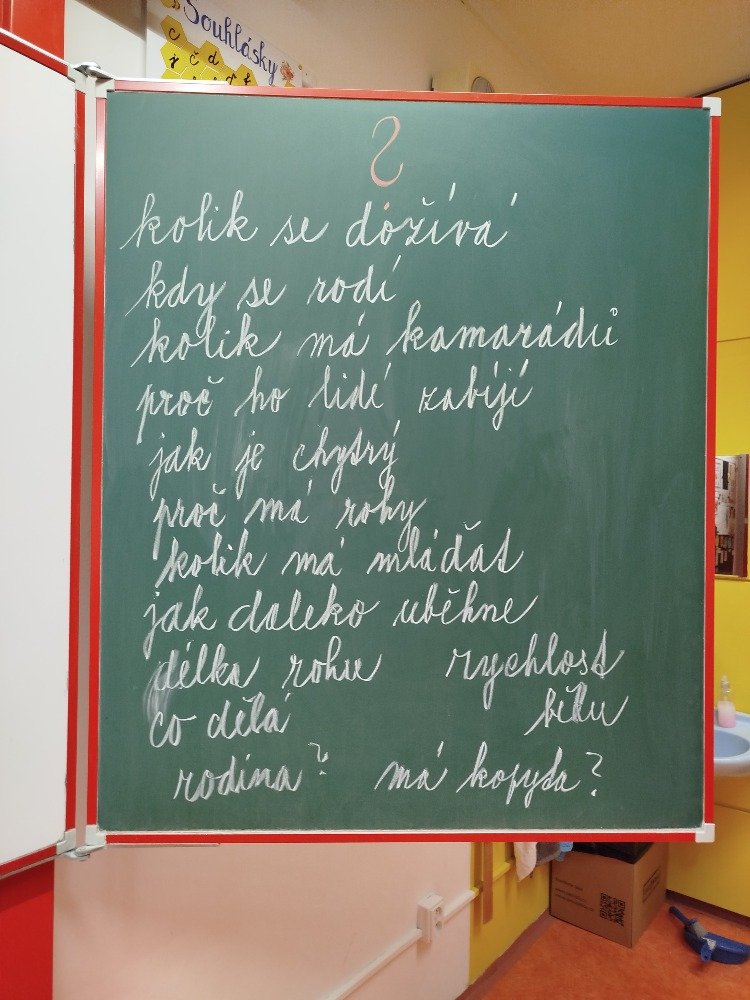 Souhlásky
?
kolik se dožívá
kdy se rodí
kolik má kamarádů
proč ho lidí zabíjí
jak je chytrý
proč má rohy
kolik má mláďat
jak daleko uběhne
délka rohu rychlost
běhu
co dělá
rodina? má kopyta?